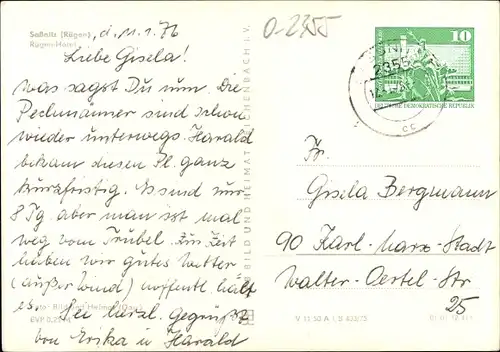 Saßnitz (Rügen)
Rügen-Hotel
, d. 11.1.76
0-2355
Liebe Gisela!
was sagst Du nun. Die
Pechmänner sind schon
wieder unterwegs. Harald
bekam diesen Pl. ganz
kurzfristig. Es sind nur
8 Tg. aber man ist mal
weg vom Trubel. Zur Zeit
haben wir gutes Wetter
(außer Wind) hoffentl. hält
es.
Sei herzl. Gegrüßt
von Erika und Harald
EVP 0,25
BILD UND HEIMAT REICHENBACH i. V.
V 11 50 A 1/B 432/75
10
DEUTSCHE DEMOKRATISCHE REPUBLIK
2355
cc
Fr.
Gisela Bergmann
90 Karl-Marx-Stadt
Walter-Oertel-Str
25